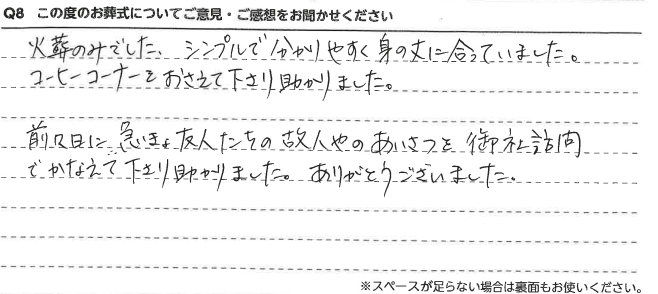 Q8 この度のお葬式についてご意見・ご感想をお聞かせください
火葬のみでした、シンプルで分かりやすく身の丈に合っていました。
コーヒーコーナーをおさえて下さり助かりました。
前々日に急きょ友人たちの故人へのあいさつを御社訪問
でかなえて下さり助かりました。ありがとうございました。
※スペースが足らない場合は裏面もお使いください。